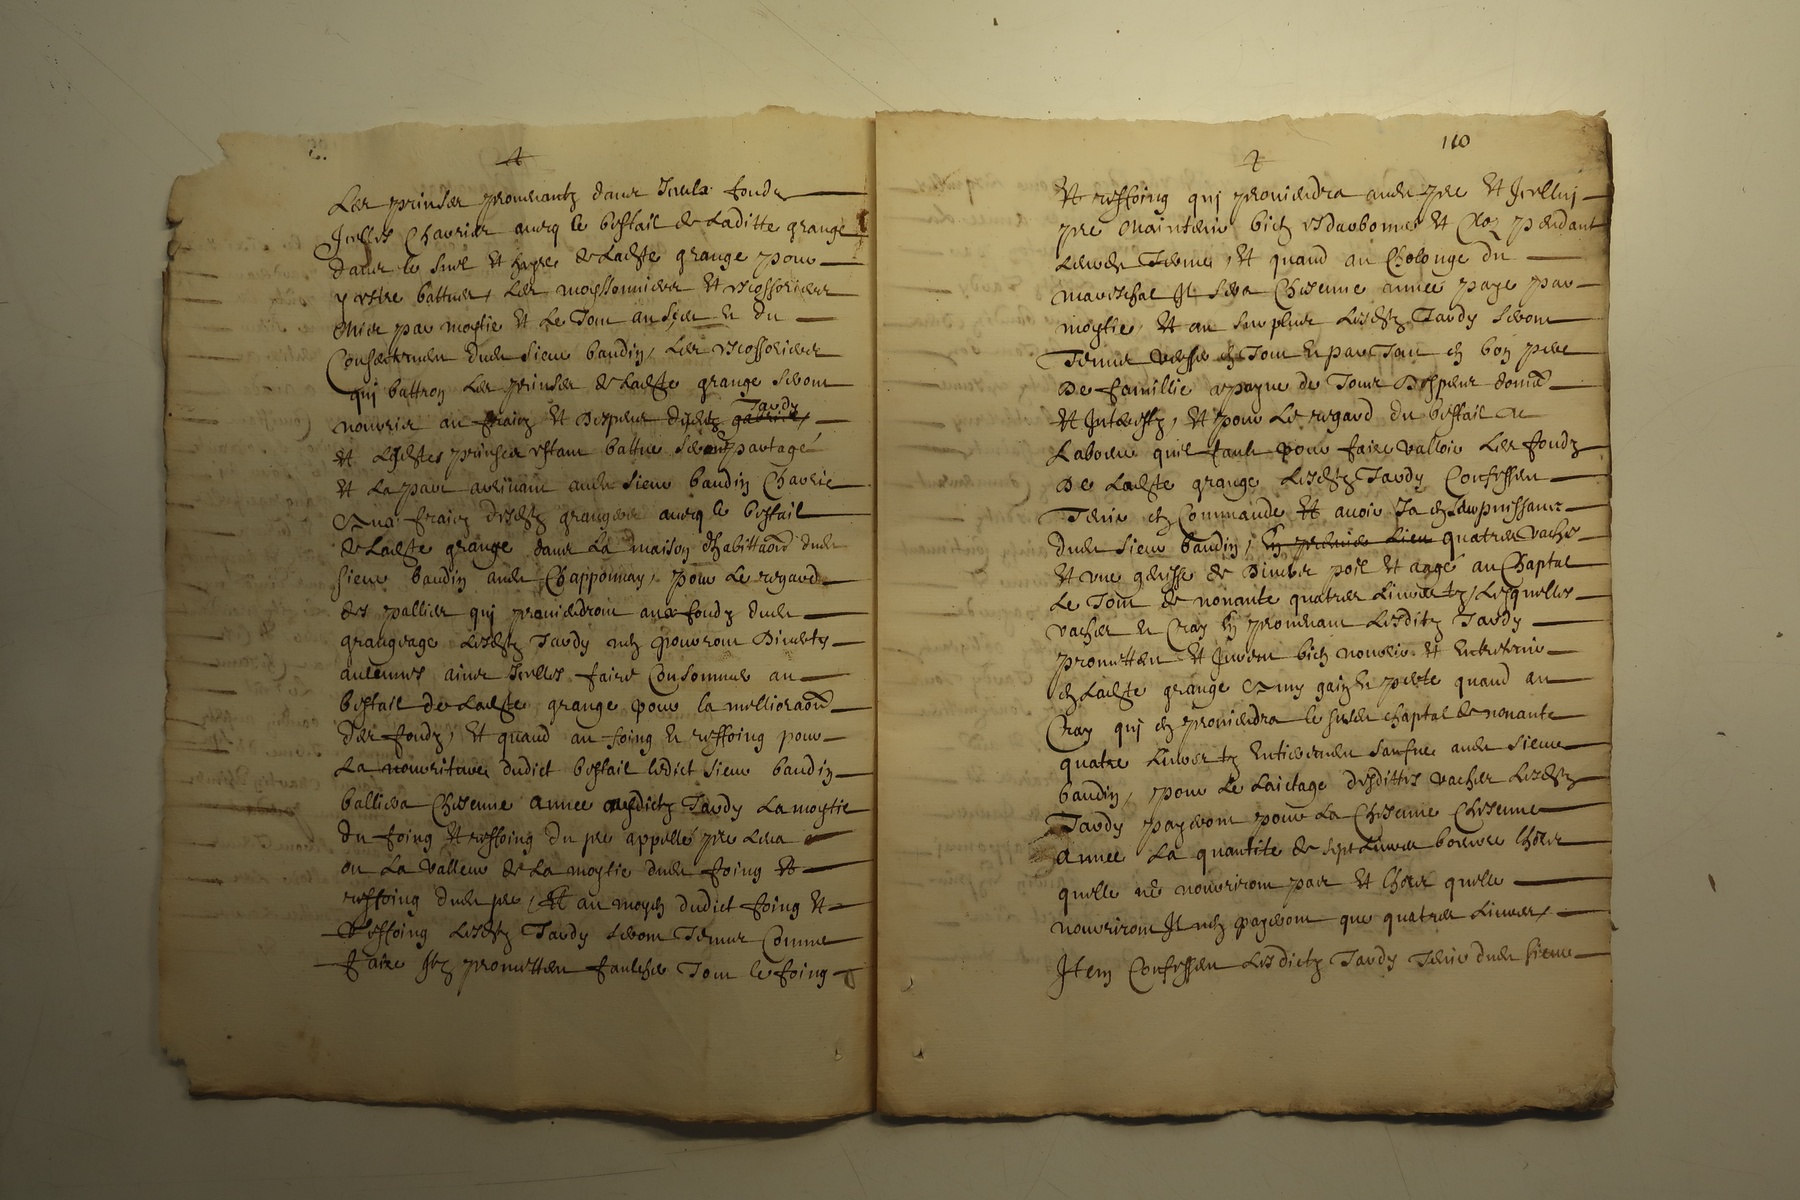 Les prinses provenantz dans Iceulx fondz
Icelles Charier avecq le bestail de laditte grange
dans le suel et de ladicte grange pour
y estre battues, Les moyssonniers et escossoniers
par moytie et Le Tout au et du
Consentement dudt sieur baudin, Les escossoniers
qui battron Les prinses de ladicte grange seront
nourris au fraictz et despens desdtz Tardy
et Lesdictes prinses estant battue seront partagé
et La part advenant audt sieur baudin Charie
aux fraictz desdtz grangers avecq le bestail
de ladicte grange dans La maison dhabittaon dudt
sieur baudin audt Chapponnay, pour Le regard
des palliers qui proviendront aux fondz dudt
grangeage Lesdtz Tardy nen pourront Divertir
aulcunes ains Icelles faire Consommer au
bestail de Ladicte grange pour la mellioraon
des fondz, et quand au foing et reffoing pour
La nourriture dudict bestail ledict sieur baudin
balliera Chescune annee ausdictz Tardy La moytie
du foing et reffoing du pre appellé pre
ou La valleur de La moytie dudt foing et
reffoing dudt pre, Et au moyen dudict foing et
Reffoing Lesdtz Tardy seront Tenus Comme
faire promettent faulcher Tout le foing
110
Et reffoing qui proviendra audt pre Et Icelluy
pre Maintenir bien et Clos pendant
Ledt Terme, Et quand au Cholonge du
mareschal Il sera Chescune annee paye par
moytie, Et au surplus Lesdtz Tardy seront
Tenus Verser en Tout et par Tout en bon pere
De famillie a payne de Tous Despens domaé
Et Interestz, Et pour Le regard du bestail de
Labeur quil fault pour faire valloir Les fondz
De Ladicte grange Lesdtz Tardy Confessent
Tenir en Commande Et avoir Ja en Leur puissance
dudt sieur baudin, quatres vaches
Et une genisse de Divers poil et aage au Chaptal
Le Tout de nonante quatres Livres tz, Lesquelles
vaches et Croy en provenant Lesditz Tardy
promettent Et Jurent bien nourrir et Entretenir
en Ladicte grange A my gaing et perte quand au
Croy qui en proviendra le susdt chaptal de nonante
quatre Livres tz Entierement saufue audt sieur
baudin, pour Le Laictage desdittes vaches Lesdtz
Tardy payeront pour La Chescune Chescune
Annee La quantite de sept Livres beurre Lhors
quelle ne nourriront pas Et Lhors quelle
nourriront Il nen payeront que quatres Livres,
Item Confessent Lesdictz Tardy Tenir dudt sieur